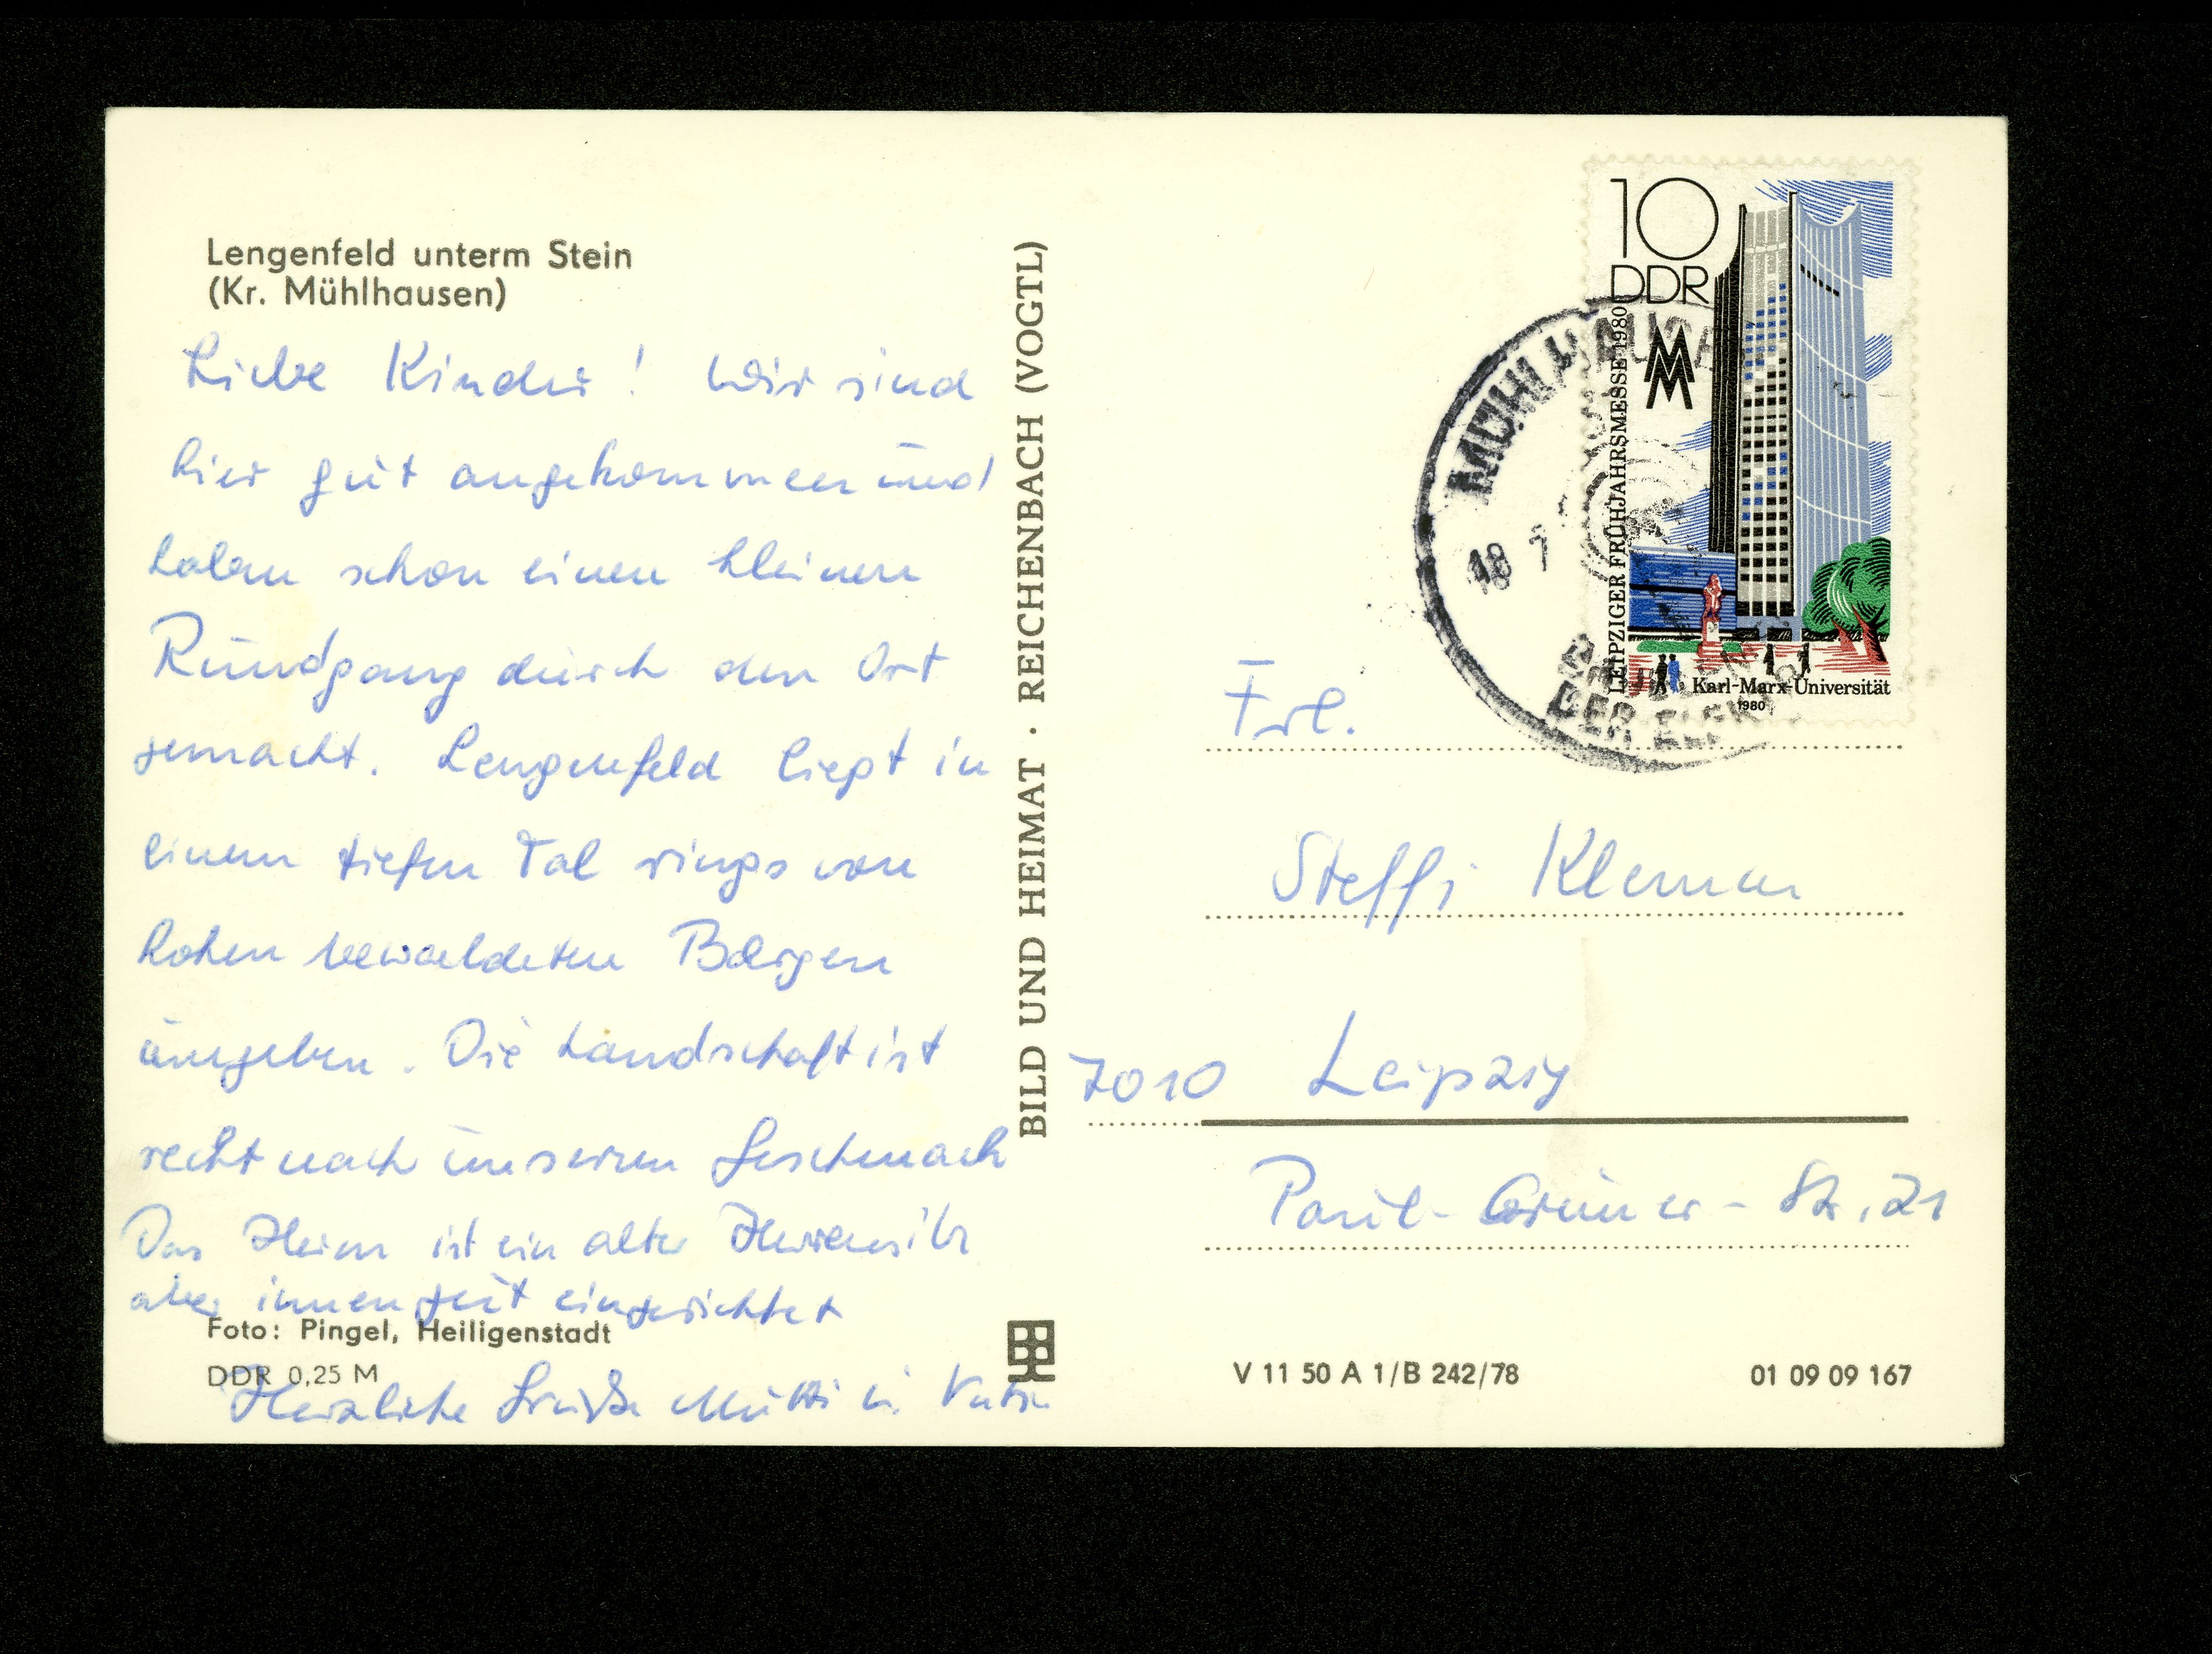 Lengenfeld unterm Stein
(Kr. Mühlhausen)
Liebe Kinder! Wir sind
hier gut angekommen und
haben schon einen kleinen
Rundgang durch den Ort
gemacht. Lengenfeld liegt in
einem tiefen Tal rings von
hohen bewaldeten Bergen
umgeben. Die Landschaft ist
recht nach unserem Geschmack
Das Heim ist ein alter Herrensitz
aber innen gut eingerichtet
Foto: Pingel, Heiligenstadt
DDR 0,25 M
Herzliche Grüße Mutti u. Vati
BILD UND HEIMAT · REICHENBACH (VOGTL)
10
DDR
MM
LEIPZIGER FRÜHJAHRSMESSE 1980
Karl-Marx-Universität
1980
MÜHLHAUSEN
18 7
DER
Frl.
Steffi Klemm
7010 Leipzig
Paul-Grüner-Str. 21
V 11 50 A 1/B 242/78
01 09 09 167